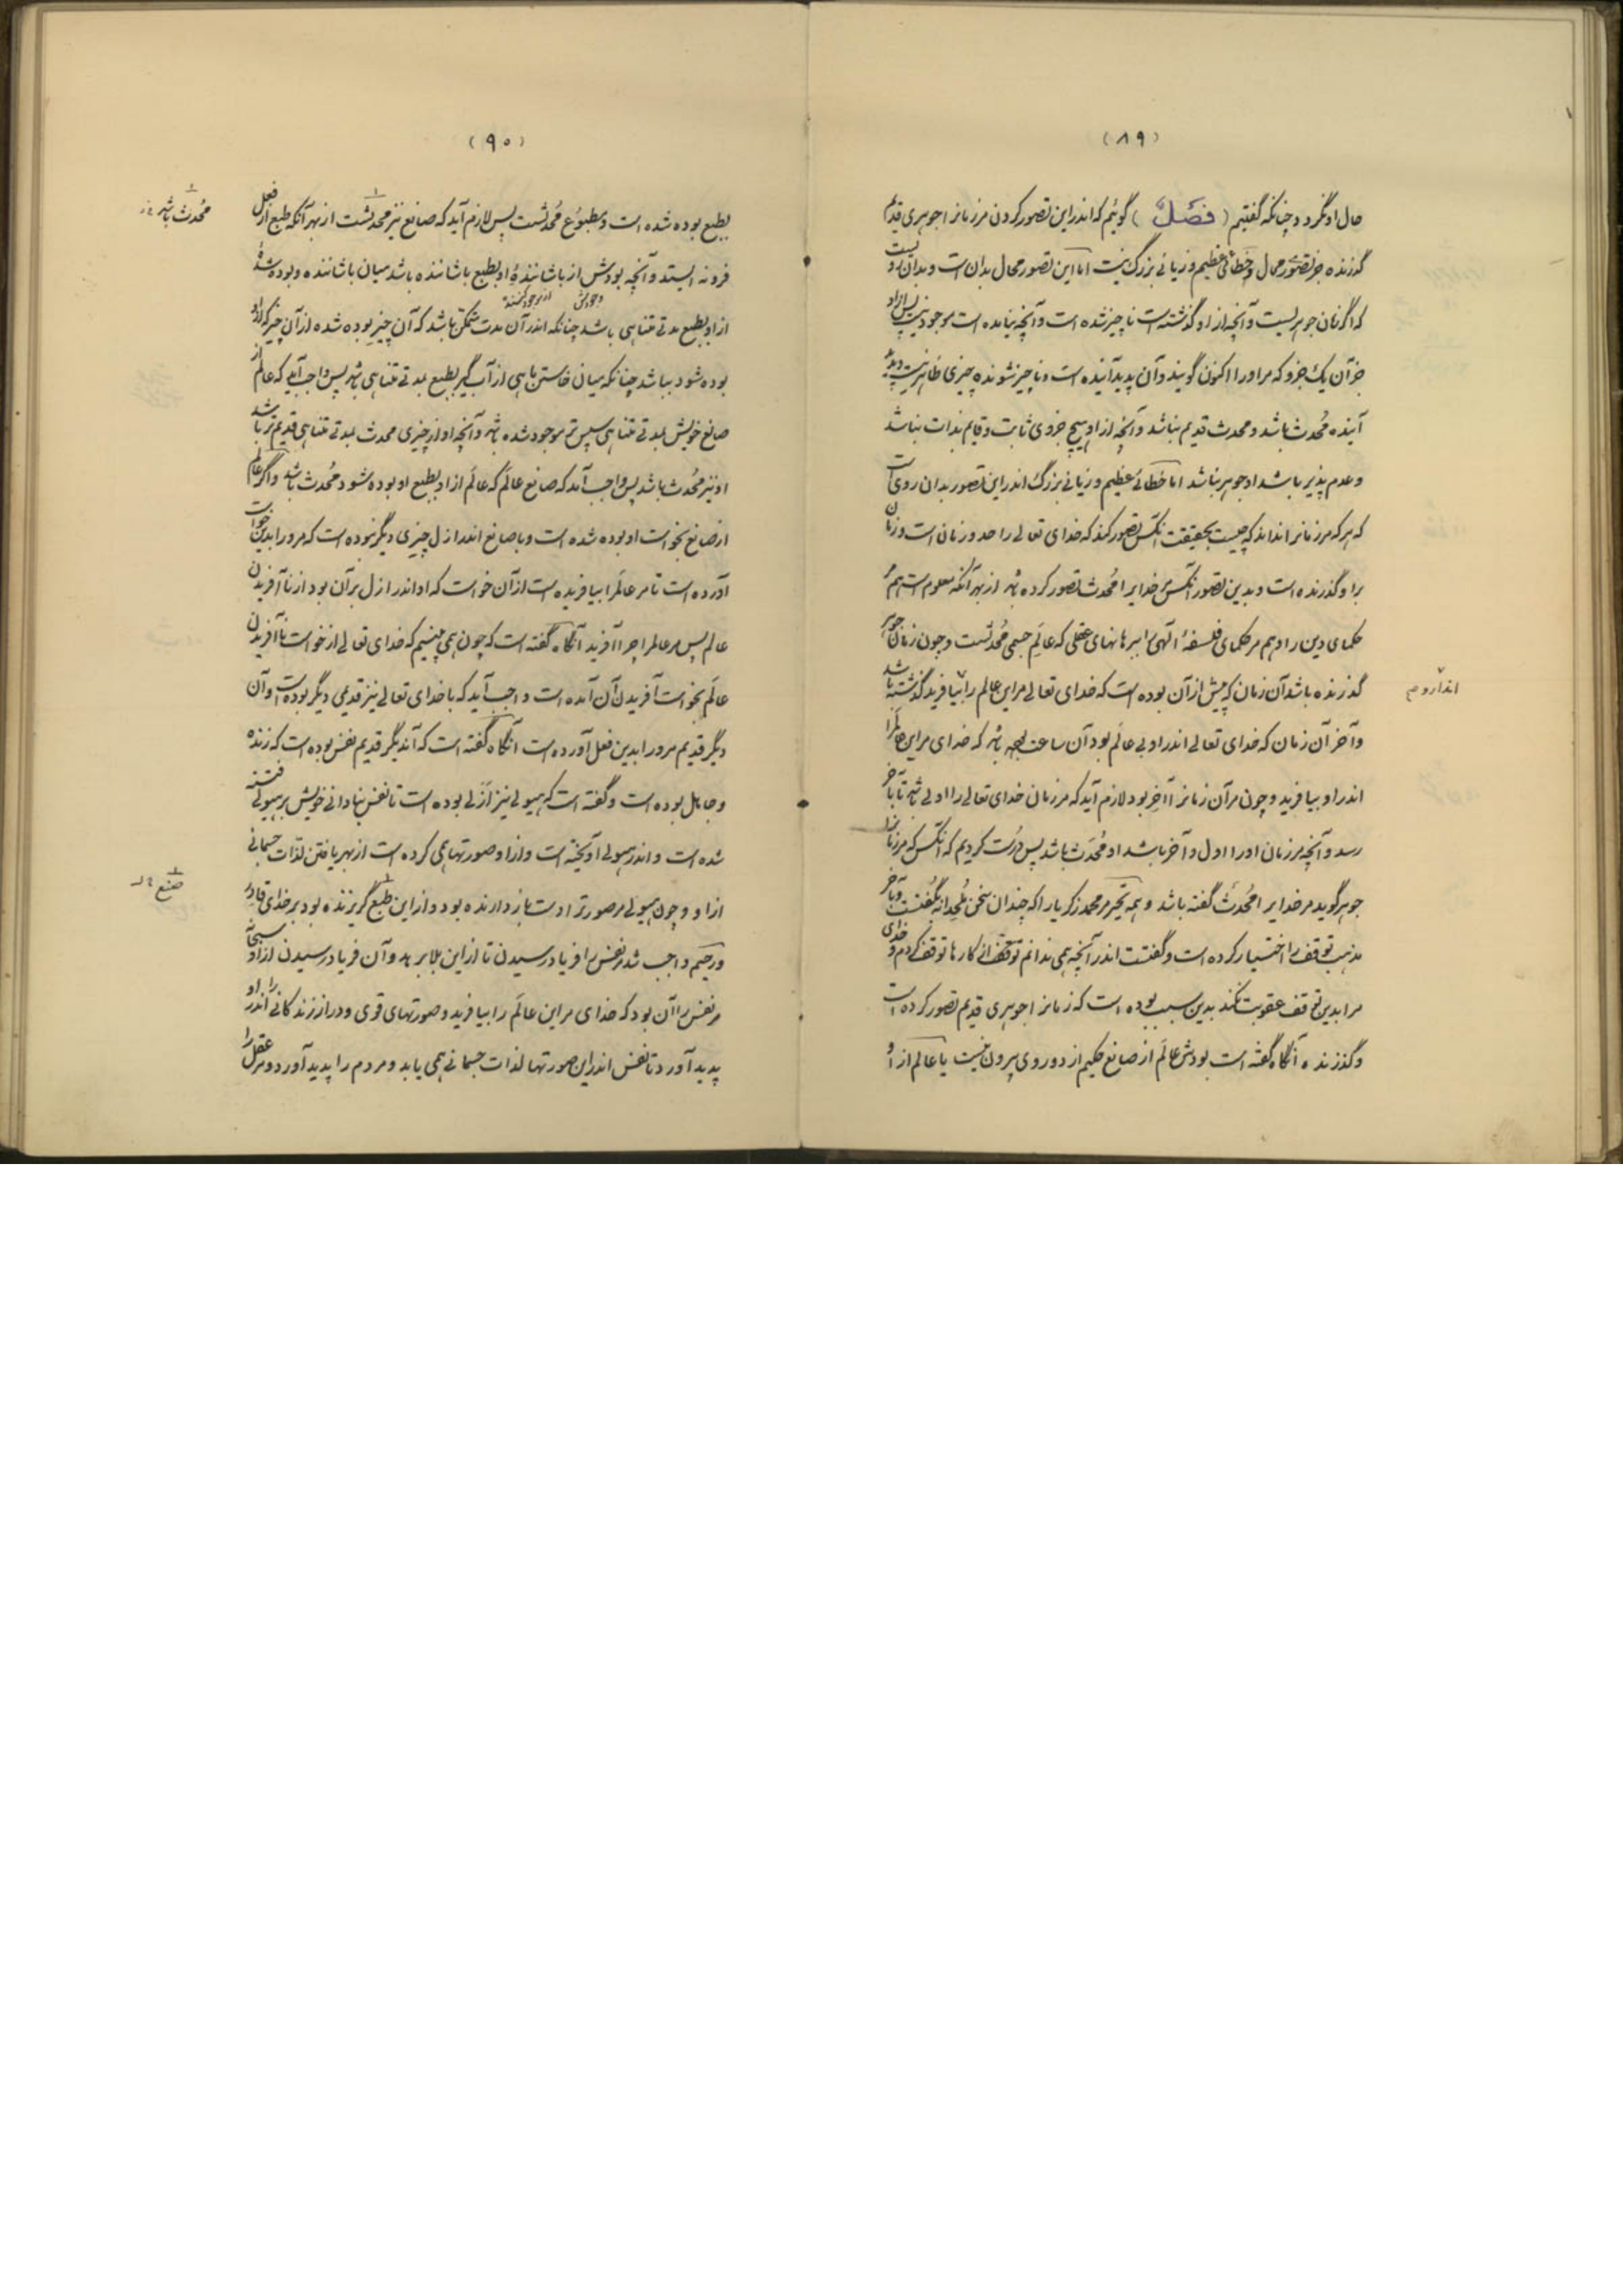 (۸۹)
حال او نگردد چنانکه گفتیم (فصل) گوئیم که اندر این تصور کردن مر زمانرا جوهری قدیم
گذرنده جز تصور محال و خطائی عظیم و زیانی بزرگ نیست اما این تصور محال بدان است و بدان روست
که اگر زمان جوهریست و آنچه از او گذشته است ناچیز شده است و آنچه نیامده است موجود نیست پس از او
جز آن یک جزو که مر او را اکنون گویند و آن پدید آینده است و ناچیز شونده چیزی ظاهر نیست و پدید
آینده محدث باشد و محدث قدیم نباشد و آنچه از او هیچ جزوی ثابت و قایم بذات نباشد
و عدم پذیر باشد او جوهر نباشد اما خطائی عظیم و زیانی بزرگ اندر این تصور بدان روی است
که هر که مر زمانرا نداند که چیست بحقیقت آنکس تصور کند که خدای تعالی را حد و زمان است و زمان
بر او گذرنده است و بدین تصور آنکس خدایرا محدث تصور کرده باشد از بهر آنکه معلوم است هم
حکمای دین را و هم مر حکمای فلسفهٔ الهی را ببرهانهای عقلی که عالم جسمی محدثست و چون زمان جوهر
گذرنده باشد آن زمان که پیش از آن بوده است که خدای تعالی مر این عالم را بیافرید گذشته باشد
و آخر آن زمان که خدای تعالی اندر او بی عالم بود آن ساعت باشد که خدای مر این عالمرا
اندر او بیافرید و چون مر آن زمانرا آخر بود لازم آید که مر زمان خدای تعالی را اولی باشد تا بآخر
رسد و آنچه مر زمان او را اول و آخر باشد او محدث باشد پس درست کردیم که آنکس که مر زمانرا
جوهر گوید مر خدایرا محدث گفته باشد و همه تحیر مر محمد زکریا را که چندان سخن ملحدانه گفتست و بآخر
مذهب توقف را اختیار کرده است و گفتست اندر آنچه همی ندانم توقف از کارها توقف کردم و خدای
مرا بدین توقف عقوبت نکند بدین سبب بوده است که زمانرا جوهری قدیم تصور کرده است
و گذرنده آنگاه گفته است بودش عالم از صانع حکیم از دو روی بیرون نیست یا عالم از او
(۹۰)
بطبع بوده شده است و مطبوع محدثست پس لازم آید که صانع نیز محدثست از بهر آنکه طبع از فعل
محدث باشد
فرو نه ایستد و آنچه بودش از باشانندهٔ او بطبع باشاننده باشد میان باشاننده و بوده شدهٔ
از او بطبع مدتی متناهی باشد چنانکه اندر آن مدت ممکن باشد که آن چیز بوده شده از آن چیز که از او
بوده شود بباشد چنانکه میان خاستن ماهی از آب گیر بطبع بمدتی متناهی باشد پس واجب آید که عالم از
صانع خویش بمدتی متناهی سپس تر موجود شده باشد و آنچه او از چیزی محدث بمدتی متناهی قدیم تر باشد
او نیز محدث باشد پس واجب آمد که صانع عالم که عالم از او بطبع او بوده شود محدث باشد و اگر عالم
از صانع بخواست او بوده شده است و با صانع اندر ازل چیزی دیگر نبوده است که مر او را بدین خواست
آورده است تا مر عالم را بیافریده است از آن خواست که او اندر ازل بر آن بود از نا آفریدن
عالم پس مر عالمرا چرا آفرید آنگاه گفته است که چون همی بینیم که خدای تعالی از خواست نا آفریدن
عالم بخواست آفریدن آن آمده است واجب آید که با خدای تعالی نیز قدیمی دیگر بوده است و آن
دیگر قدیم مر او را بدین فعل آورده است آنگاه گفته است که آن دیگر قدیم نفس بوده است که زنده
و جاهل بوده است و گفته است که هیولی نیز ازلی بوده است تا نفس بنادانی خویش بر هیولی فتنه
شده است و اندر هیولی آویخته است و از او صورتها همی کرده است از بهر یافتن لذات جسمانی
از او و چون هیولی مر صورت را دست باز دارنده بود و از این طبع گریزنده بود بر خدای قادر
صنع
و رحیم واجب شد مر نفس را فریاد رسیدن تا از این بلا برهد و آن فریاد رسیدن از او سبحانه
مر نفس را آن بود که خدای مر این عالم را بیافرید و صورتهای قوی و دراز زندگانی را اندر او
پدید آورد تا نفس اندر این صورتها لذات جسمانی همی یابد و مردم را پدید آورد و مر عقل را